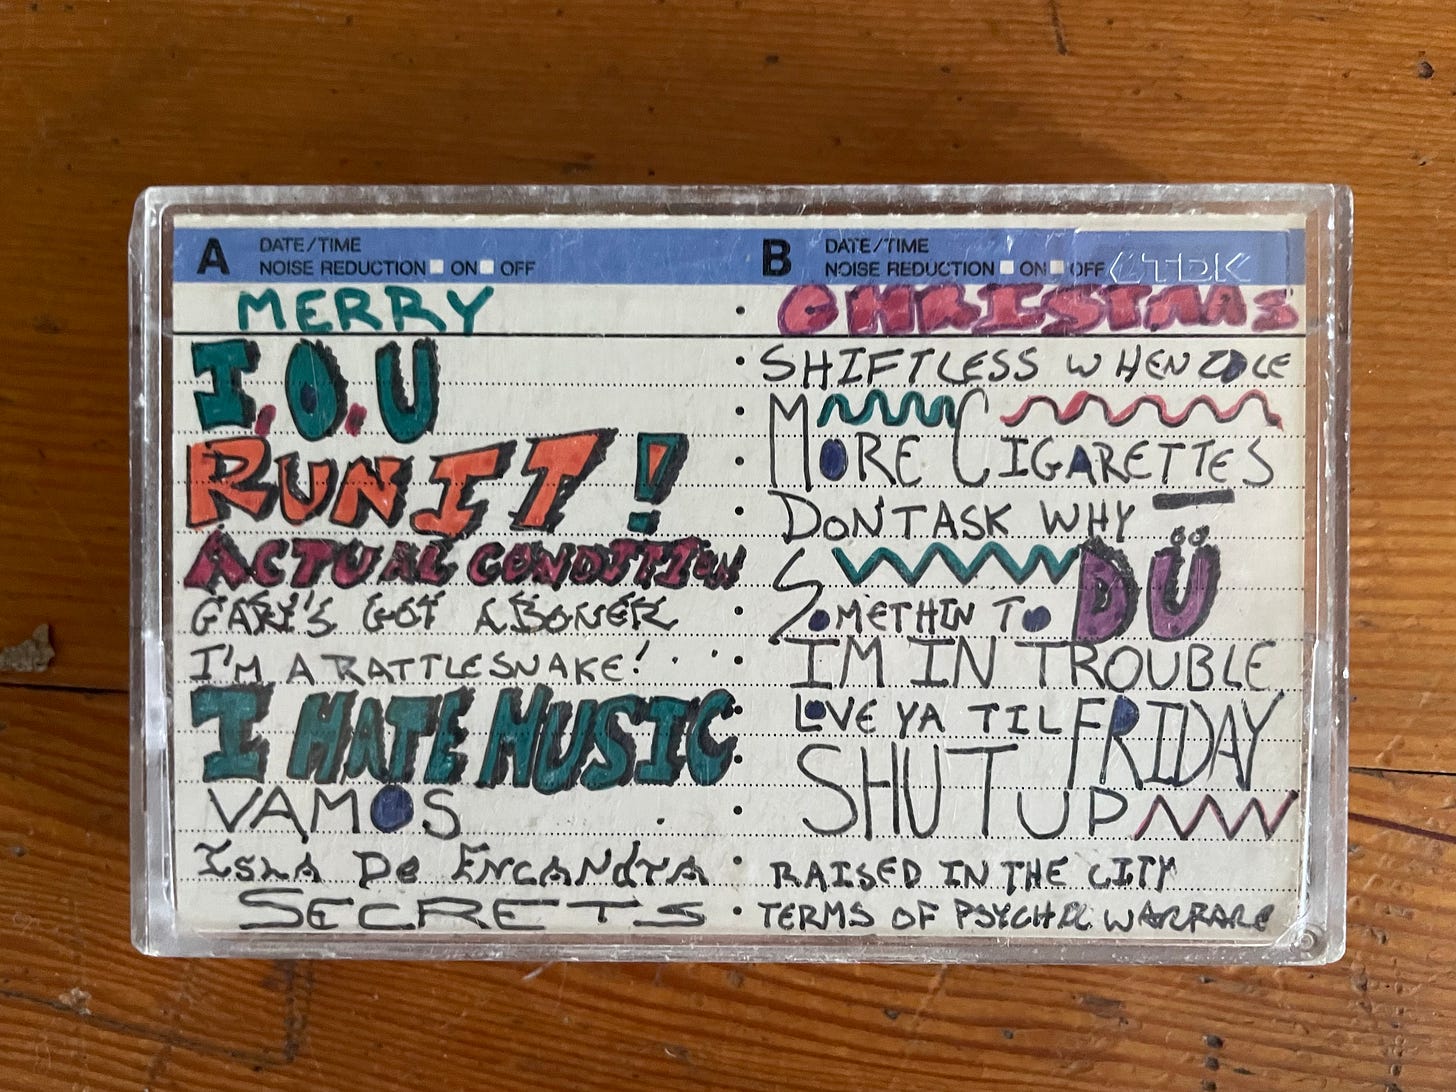 A DATE/TIME
NOISE REDUCTION ON OFF
MERRY
I.O.U
RUN IT!
ACTUAL CONDITION
GARY'S GOT A BONER
I'M A RATTLESNAKE!
I HATE MUSIC
VAMOS
ISLA De ENCANdTA
SECRETS
B DATE/TIME
NOISE REDUCTION ON OFF TDK
CHRISTMAS
SHIFTLESS WHEN IDLE
MORE CIGARETTES
DONT ASK WHY
SOMETHIN TO DÜ
IM IN TROUBLE
LOVE YA TIL FRIDAY
SHUT UP
RAISED IN THE CITY
TERMS OF PSYCHIC WARFARE